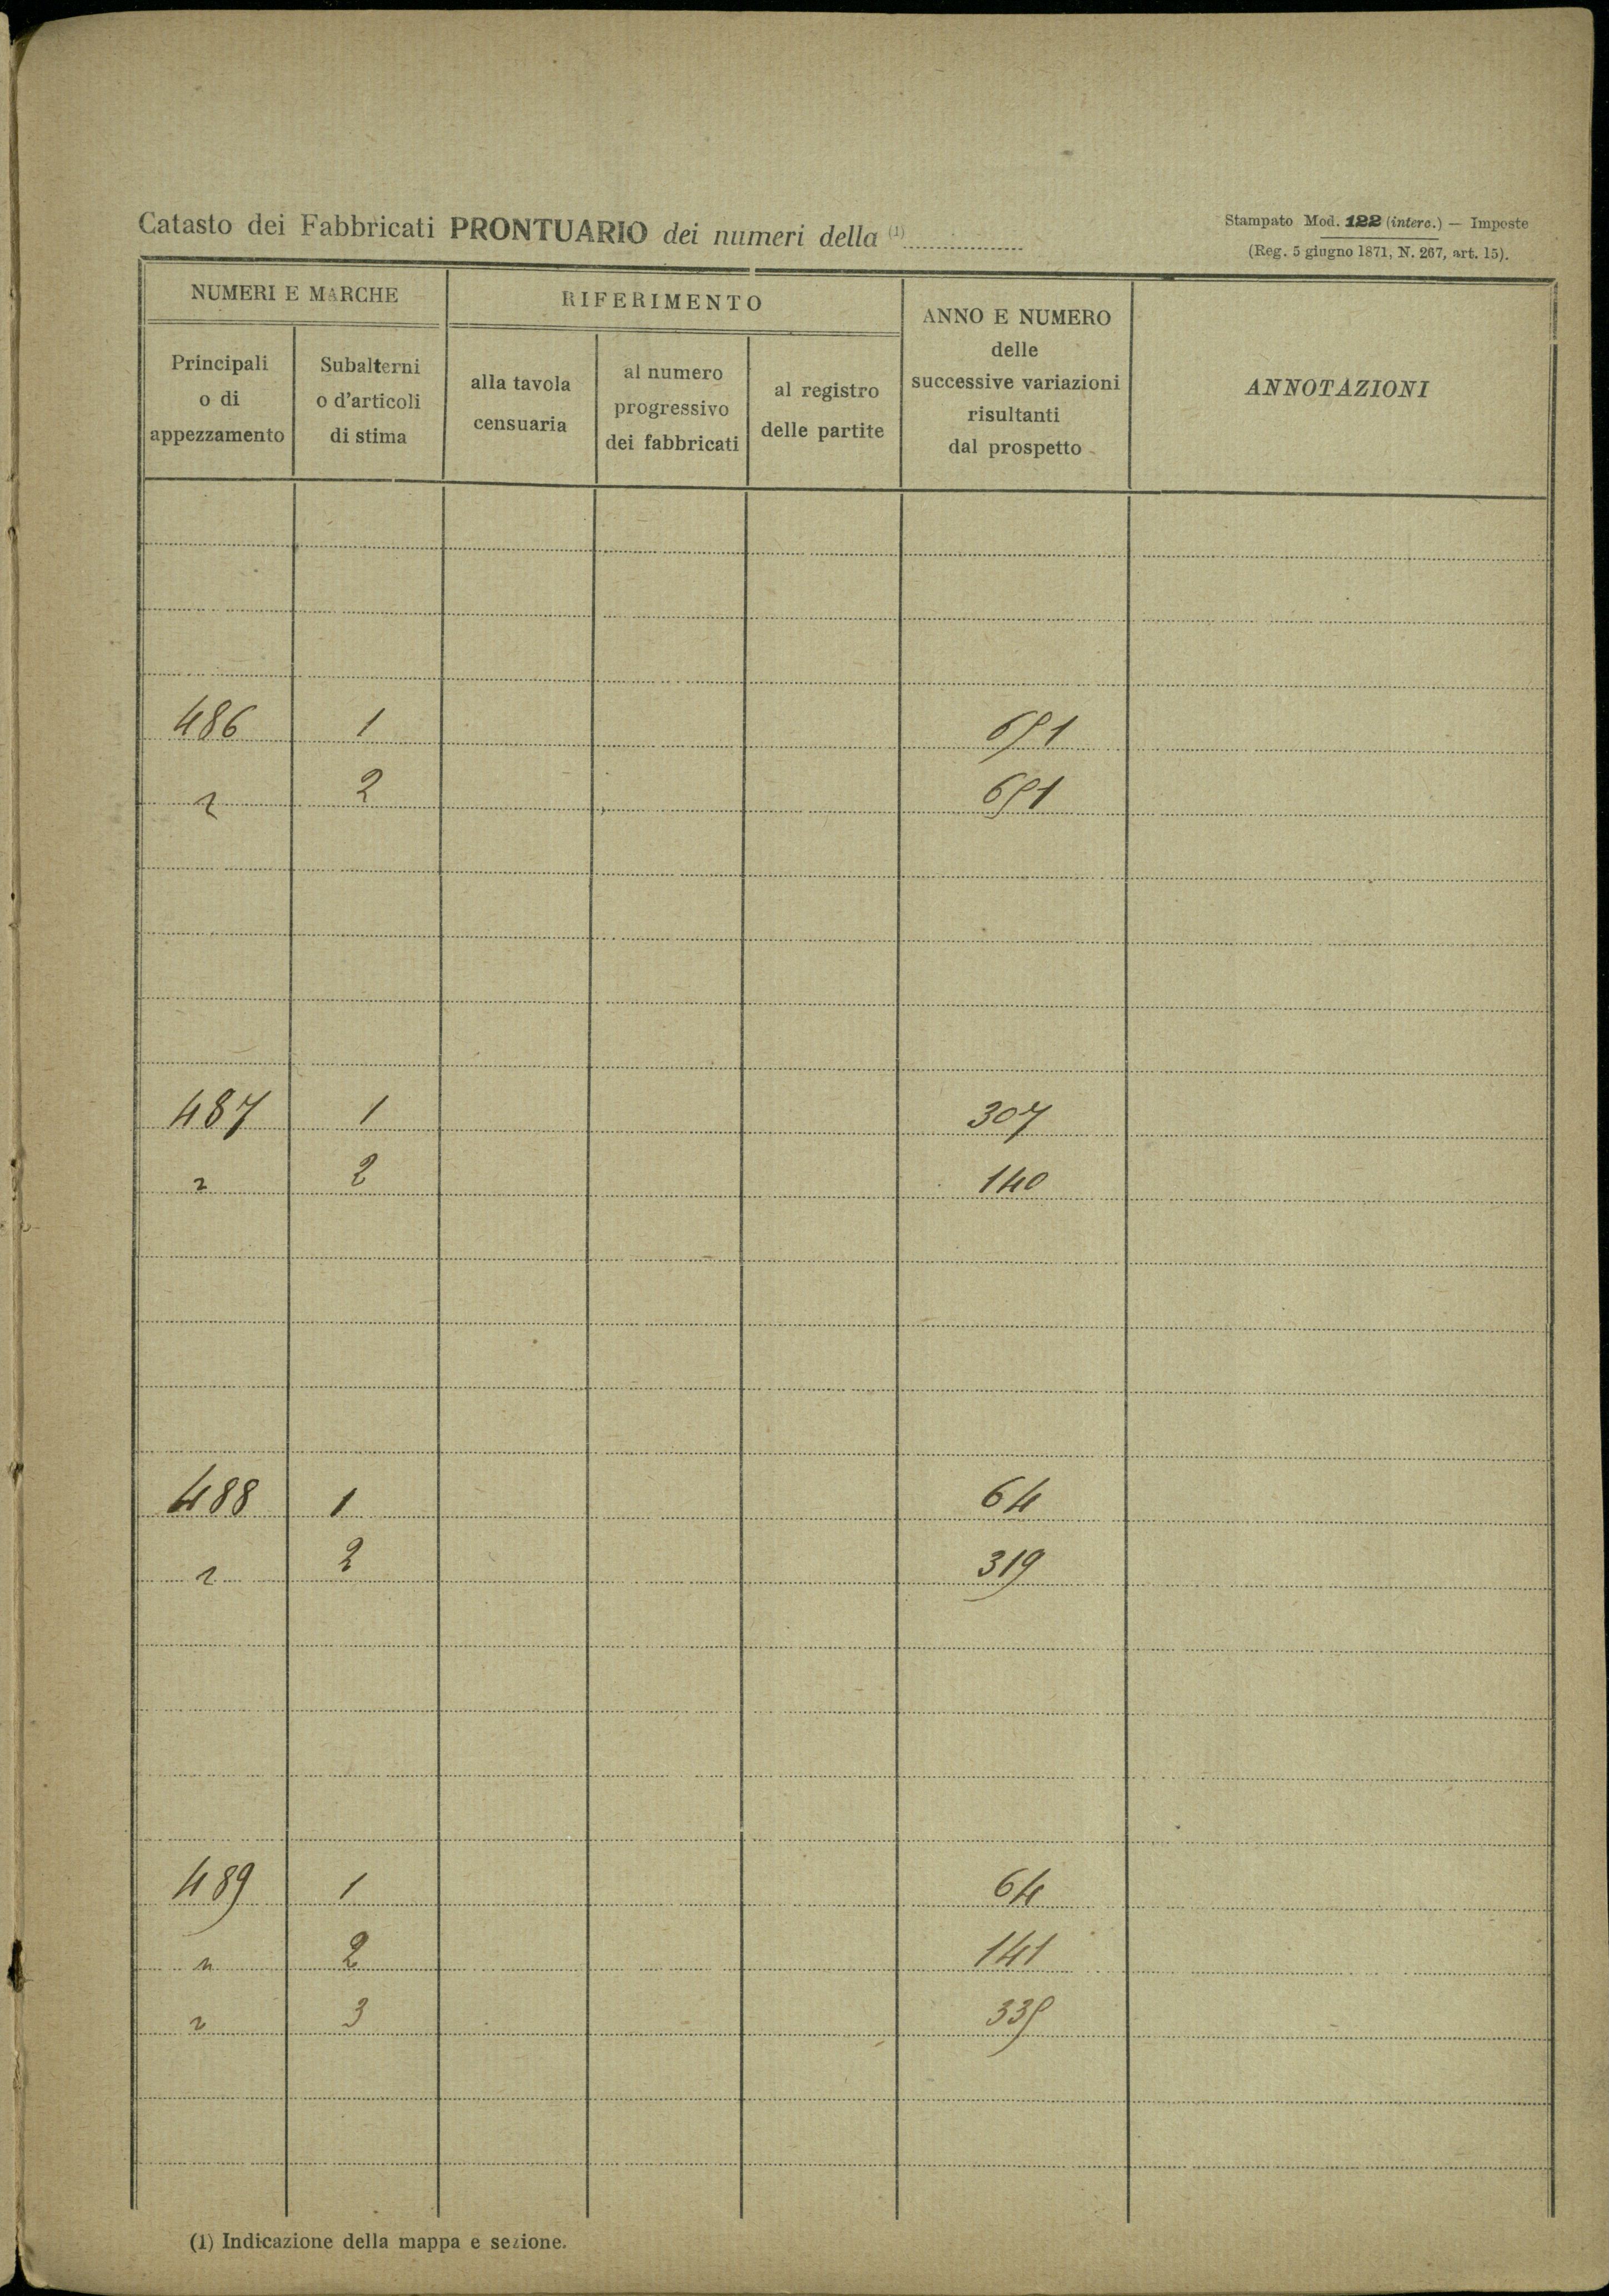 Catasto dei Fabbricati PRONTUARIO dei numeri della (1)
Stampato Mod. 122 (interc.) — Imposte
(Reg. 5 giugno 1871, N. 267, art. 15).
NUMERI E MARCHE
RIFERIMENTO
ANNO E NUMERO
delle
successive variazioni
risultanti
dal prospetto
ANNOTAZIONI
Principali
o di
appezzamento
Subalterni
o d'articoli
di stima
alla tavola
censuaria
al numero
progressivo
dei fabbricati
al registro
delle partite
486 1 651
" 2 651
487 1 307
" 2 140
488 1 64
" 2 319
489 1 64
" 2 141
" 3 335
(1) Indicazione della mappa e sezione.